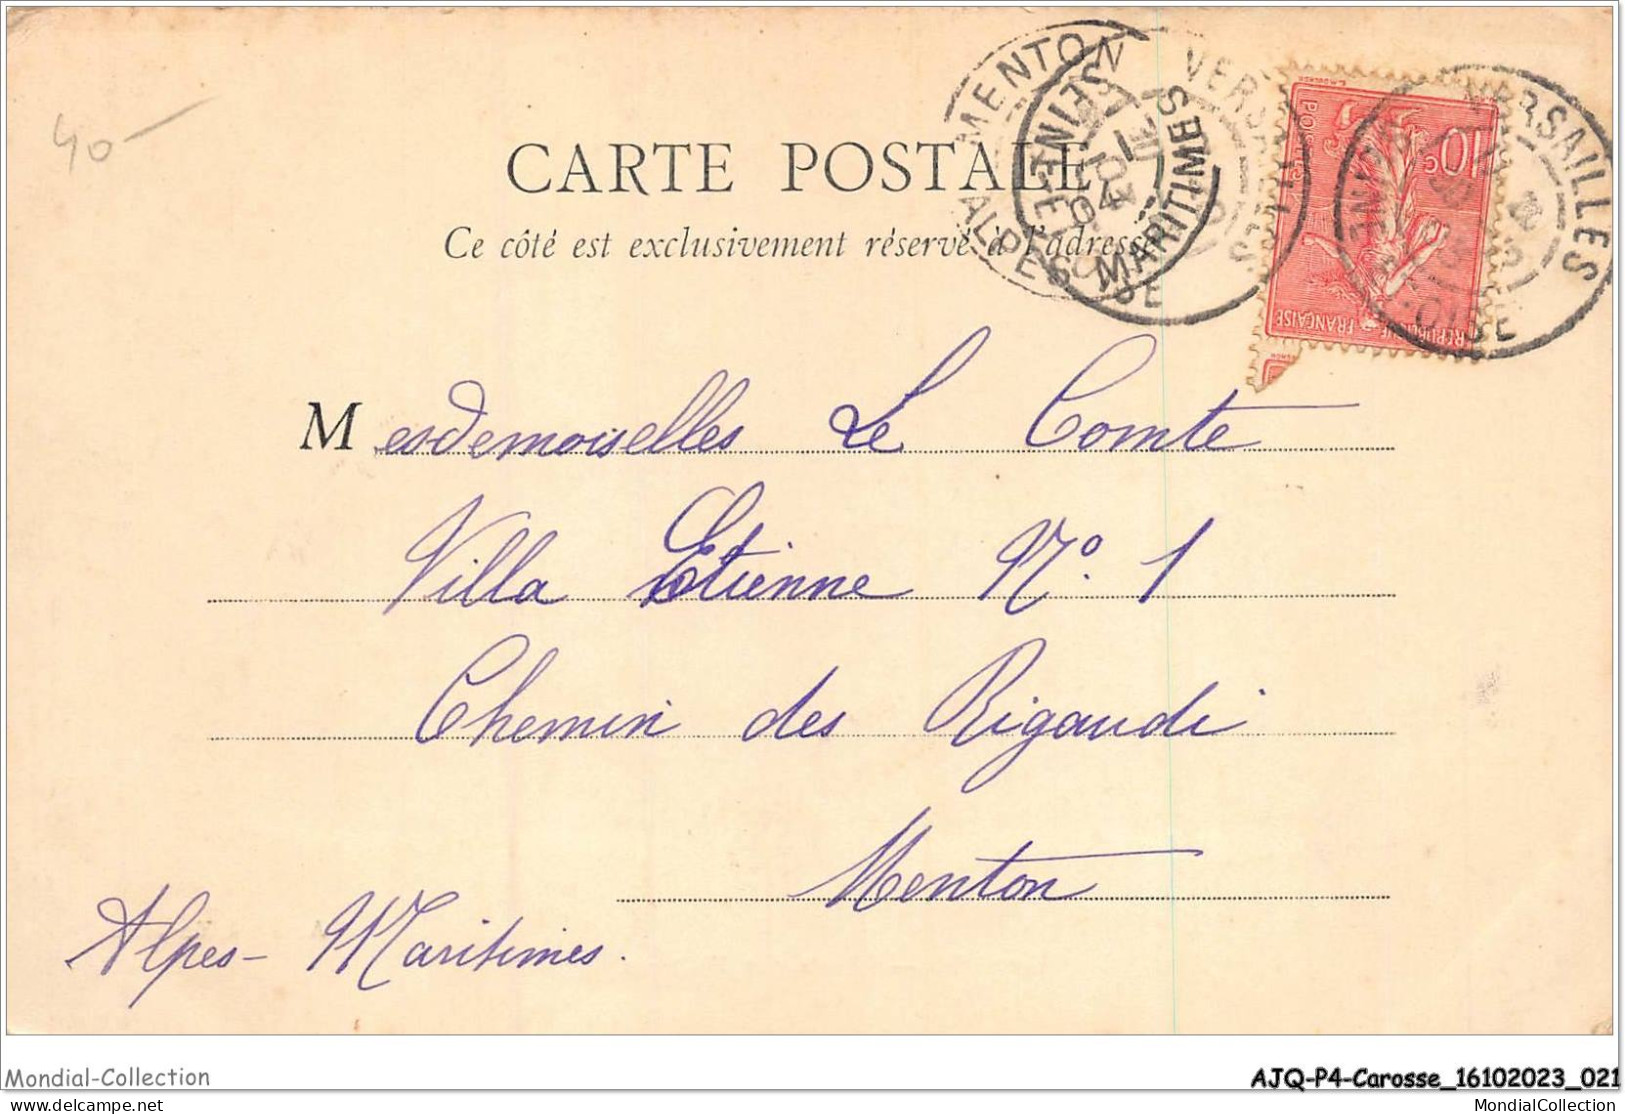 40-
MENTON
ALPES MARITIMES
VERSAILLES
SEINE-ET-OISE
VERSAILLES
SEINE
OISE
10c
POSTES
REPUBLIQUE FRANÇAISE
CARTE POSTALE
Ce côté est exclusivement réservé à l'adresse
Mesdemoiselles Le Comte
Villa Etienne Nº. 1
Chemin des Rigaudi
Menton
Alpes-Maritimes.
Mondial-Collection
AJQ-P4-Carosse_16102023_021
delcampe.net
MondialCollection